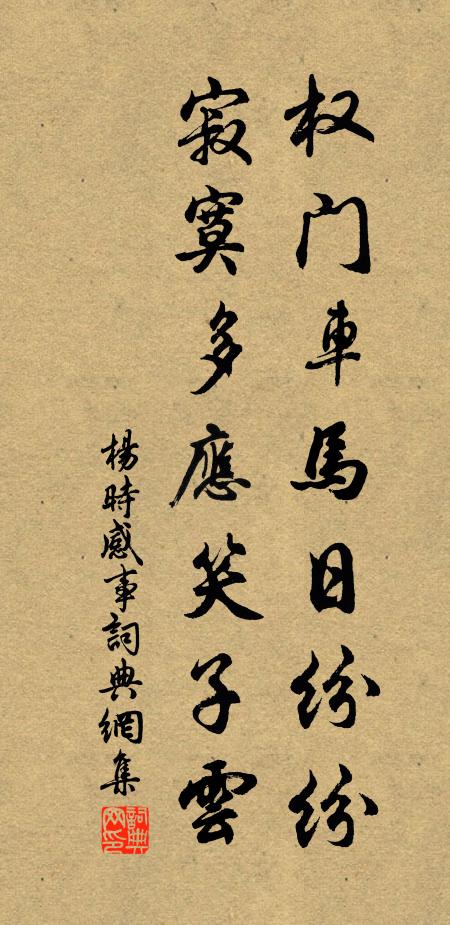 权门車馬日纷纷
寂寞多應笑子雲
楊時感事詞典網集
詞典网印